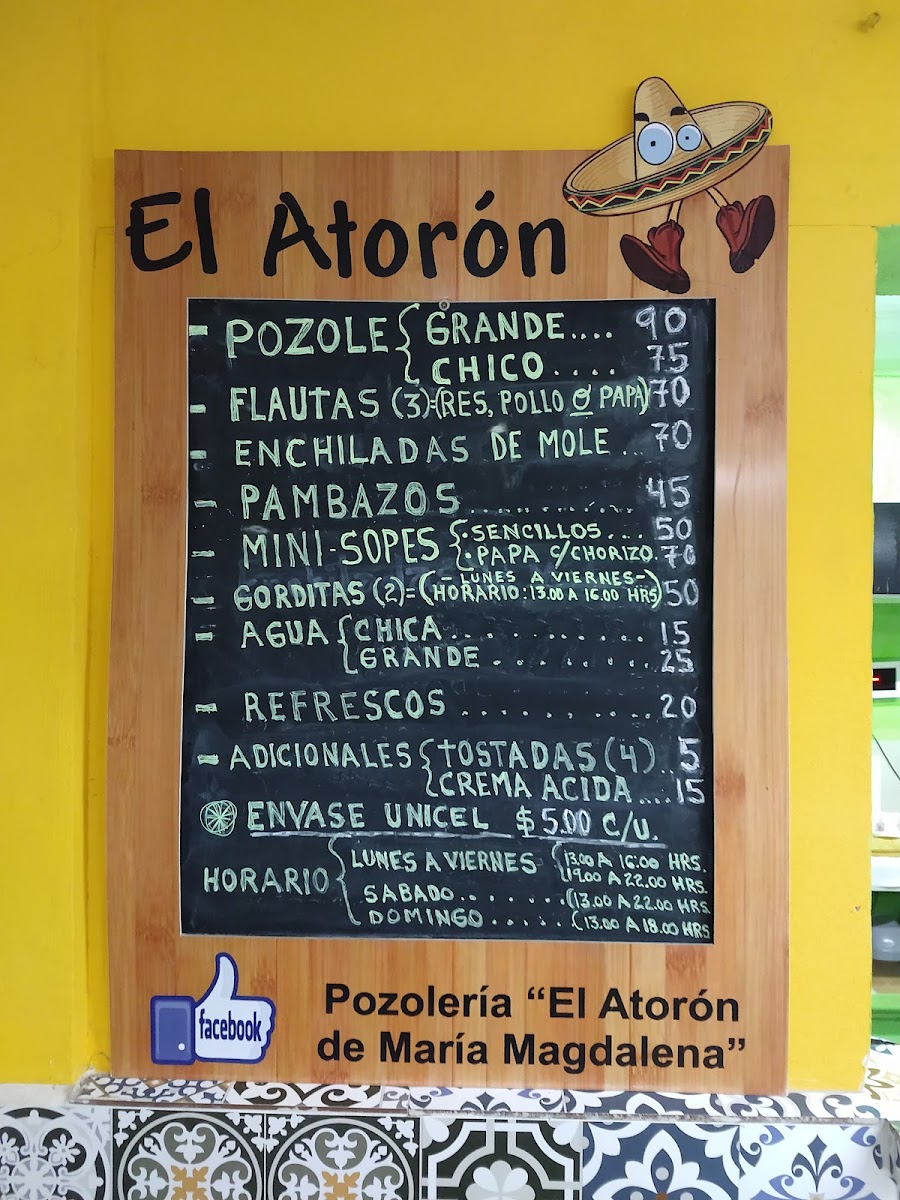 El Atorón
- POZOLE { GRANDE.... 90
CHICO.... 75
- FLAUTAS (3)=(RES, POLLO Ó PAPA) 70
- ENCHILADAS DE MOLE ... 70
- PAMBAZOS ............. 45
- MINI-SOPES { • SENCILLOS... 50
• PAPA C/CHORIZO. 70
- GORDITAS (2)=(-LUNES A VIERNES-
HORARIO: 13.00 A 16.00 HRS) 50
- AGUA { CHICA............ 15
GRANDE.......... 25
- REFRESCOS ............ 20
- ADICIONALES { TOSTADAS (4).. 5
CREMA ACIDA.... 15
ENVASE UNICEL $5.00 C/U.
HORARIO { LUNES A VIERNES { 13.00 A 16:00 HRS.
19.00 A 22.00 HRS.
SABADO........ (13.00 A 22.00 HRS
DOMINGO...... (13.00 A 18.00 HRS
facebook
Pozolería “El Atorón
de María Magdalena”